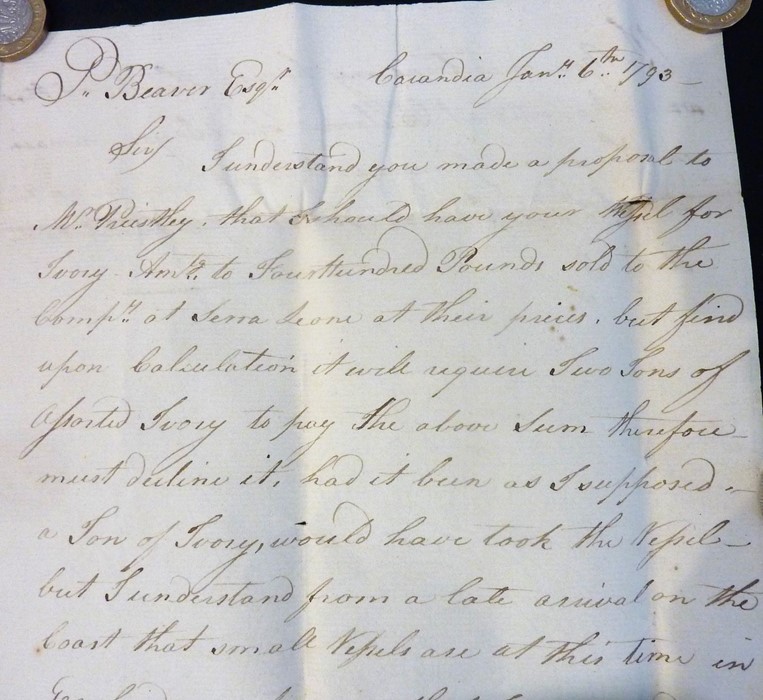 P. Beaver Esqr. Cacandia Jany. 6th. 1793
Sir/ I understand you made a proposal to
Mr. Priestley, that I should have your Vessel for
Ivory Amtg. to Four Hundred Pounds sold to the
Compy. at Serra Leone at their prices, but find
upon Calculation it will require Two Tons of
Assorted Ivory to pay the above Sum therefore
must decline it, had it been as I supposed,
a Ton of Ivory, would have took the Vessel
but I understand from a late arrival on the
Coast that small Vessels are at this time in